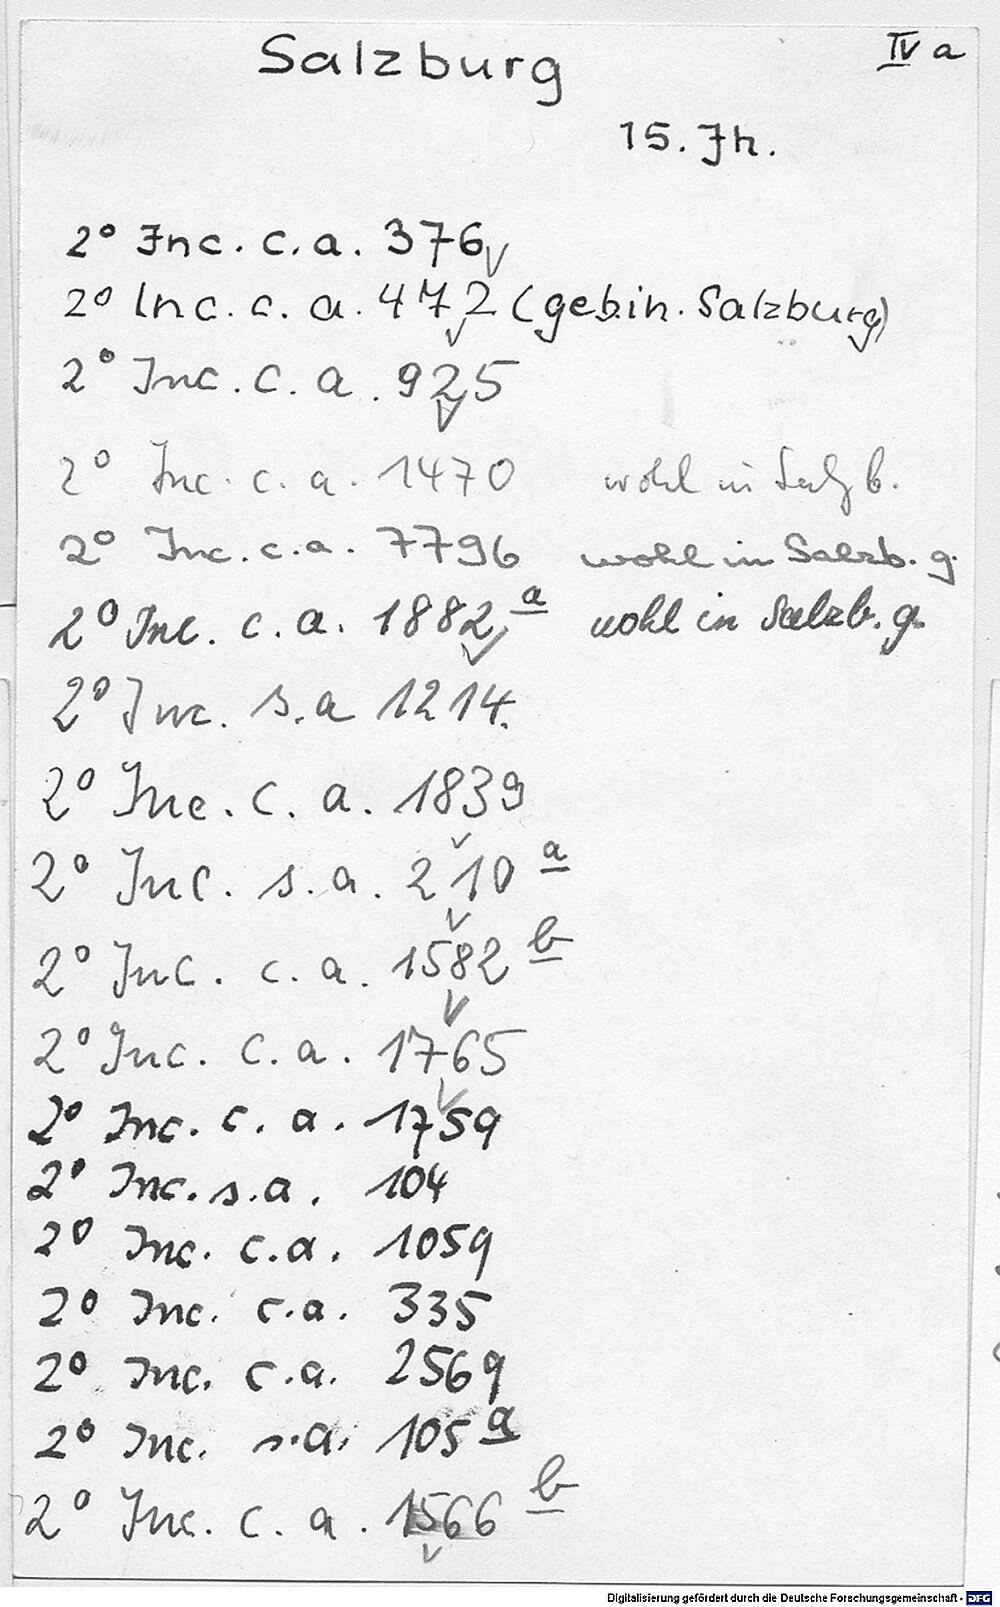 Salzburg IV a
15. Jh.
2° Inc. c. a. 376
2° Inc. c. a. 472 (geb. in. Salzburg)
2° Inc. c. a. 925
2° Inc. c. a. 1470 wohl in Salzb.
2° Inc. c. a. 7796 wohl in Salzb. g.
2° Inc. c. a. 1882 a wohl in Salzb. g.
2° Inc. s. a 1214.
2° Inc. c. a. 1839
2° Inc. s. a. 210 a
2° Inc. c. a. 1582 b
2° Inc. c. a. 1765
2° Inc. c. a. 1759
2° Inc. s. a. 104
2° Inc. c. a. 1059
2° Inc. c. a. 335
2° Inc. c. a. 2569
2° Inc. s. a. 105 a
2° Inc. c. a. 1566 b
Digitalisierung gefördert durch die Deutsche Forschungsgemeinschaft - DFG